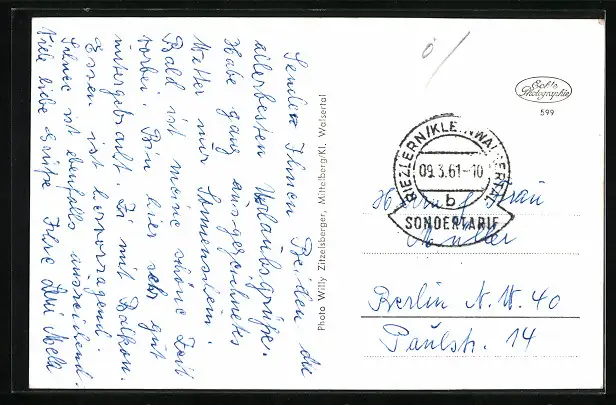 Senden Ihnen Beiden die
allerbesten Urlaubsgrüße.
Habe ganz ausgezeichnetes
Wetter mit Sonnenschein.
Bald ist meine schöne Zeit
vorbei. Bin hier sehr gut
untergebracht. Zi mit Balkon.
Essen ist hervorragend.
Schnee ist ebenfalls ausreichend.
Viele liebe Grüße Ihre
Photo Willy Zitzelsberger, Mittelberg/Kl. Walsertal
Echte
Photographie
599
RIEZLERN/KLEINWALSERTAL
09.3.61-10
b
SONDERTARIF
Herrn u. Frau
Müller
Berlin N.W. 40
Paulstr. 14